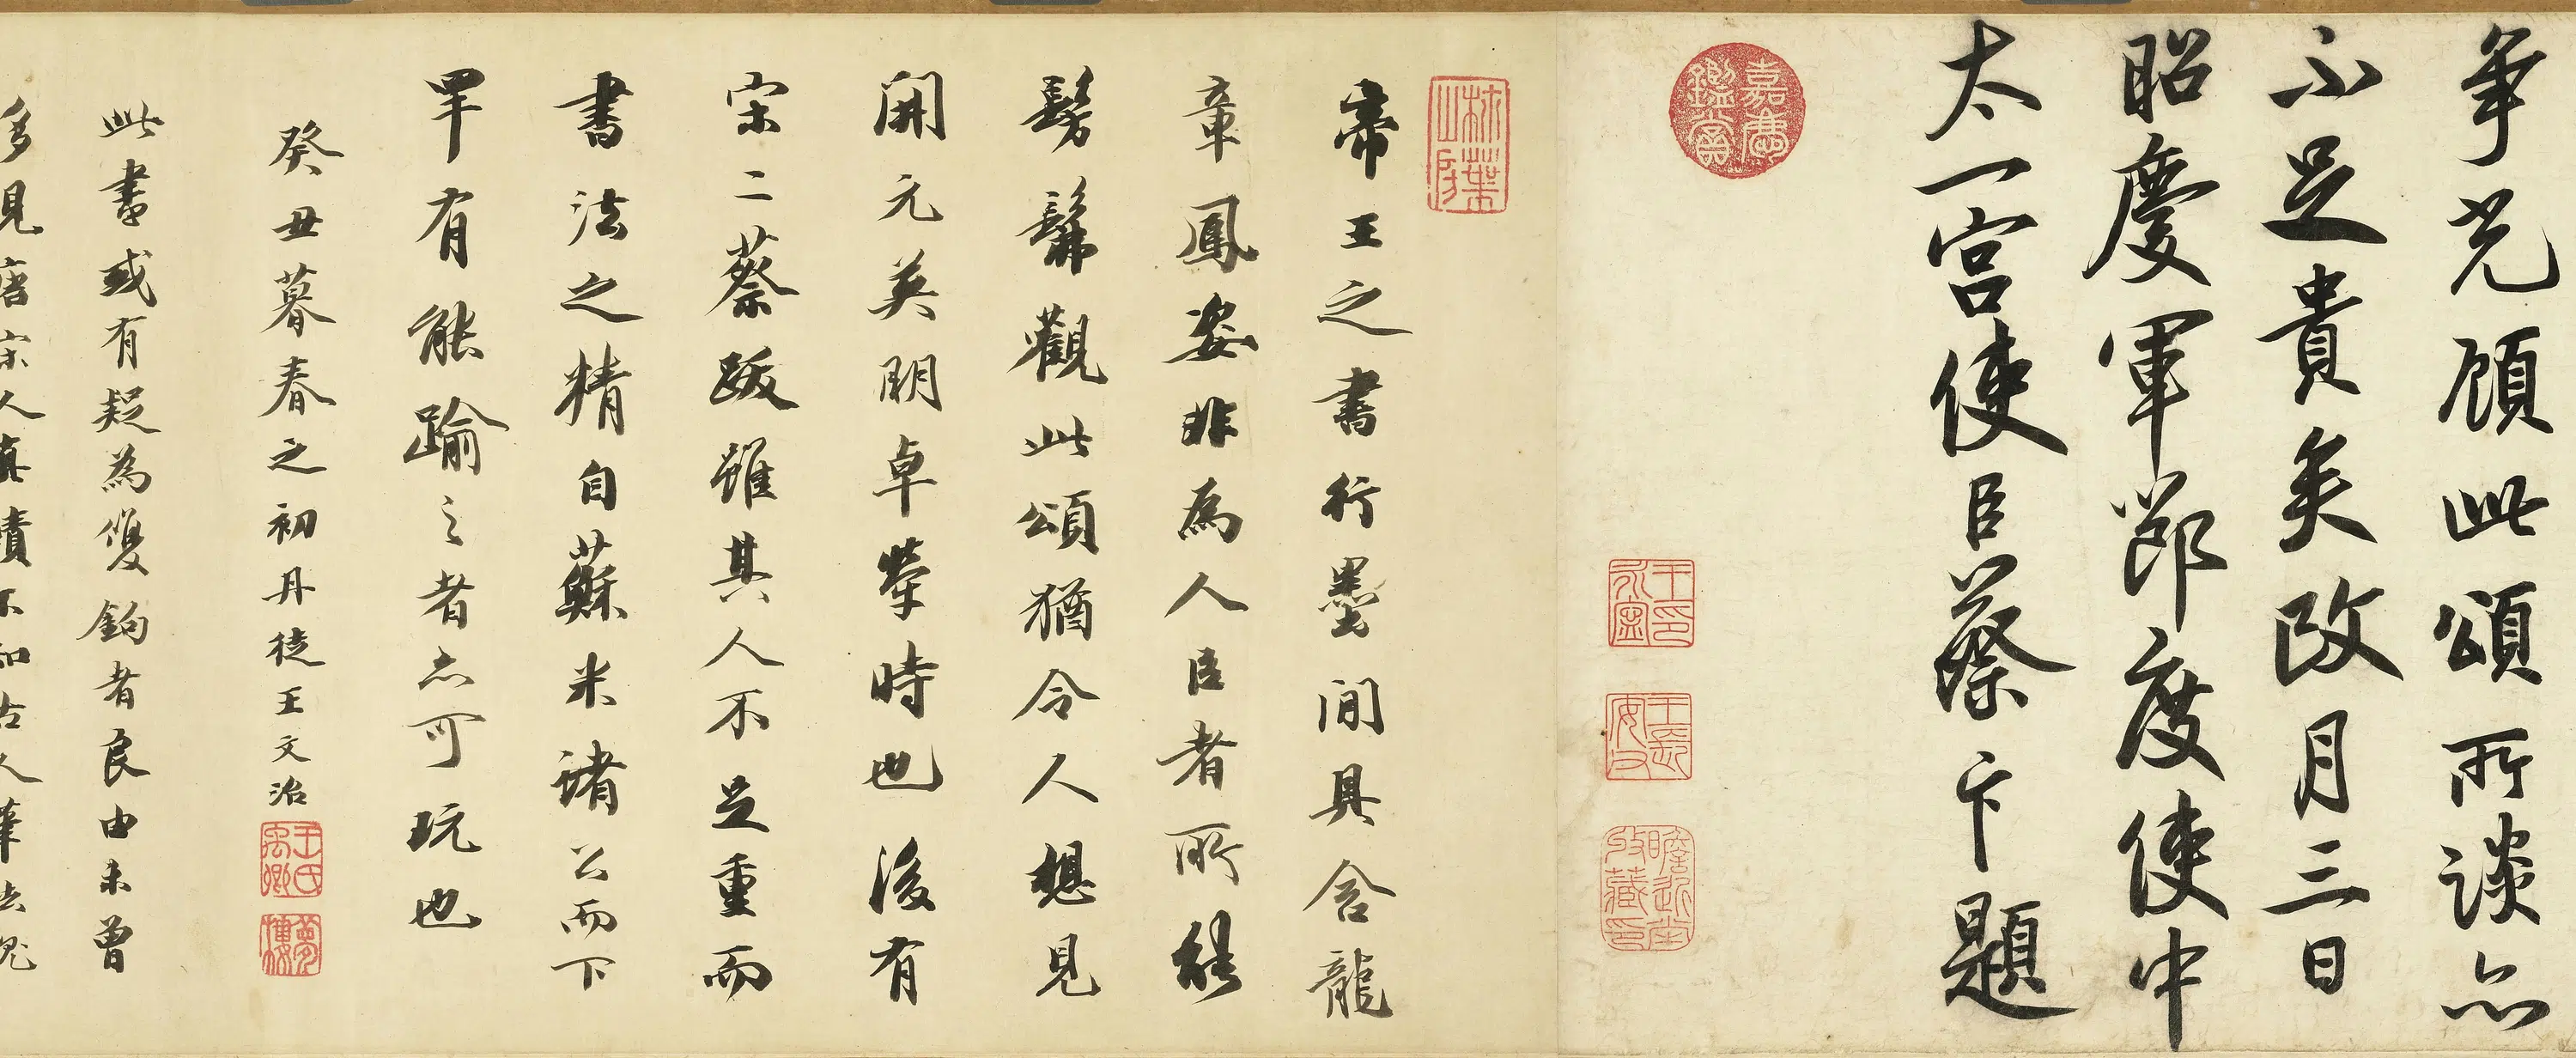 爭光顧此頌所談亦
不足貴矣政月三日
昭慶軍節度使中
太一宮使臣蔡卞題
嘉慶鑑賞
帝王之書行墨間具含龍
章鳳姿非為人臣者所能
髣髴觀此頌猶令人想見
開元英明卓犖時也後有
宋二蔡跋雖其人不足重而
書法之精自蘇米諸公而下
罕有能踰之者亦可玩也
癸丑暮春之初丹徒王文治
王氏禹卿
夢樓
此書或有疑為雙鉤者良由未曾
多見唐宋人真蹟不知古人筆法